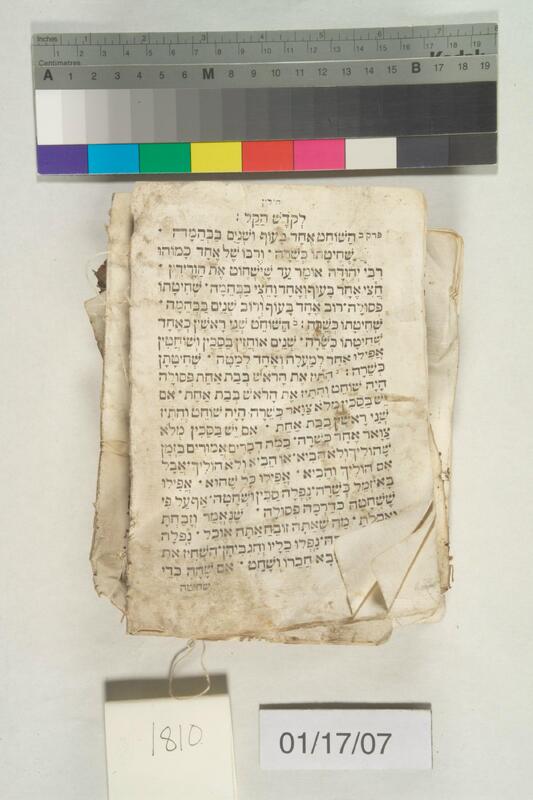 Inches 1 2 3 4 5 6 7 8
1 2 3 4 5 6 7 8 9 10 11 12 13 14 15 16 17 18 19
Centimetres
A 1 2 3 4 5 6 M 8 9 10 11 12 13 14 15 B 17 18 19
חולין
לְקֹדֶשׁ הַקַּל :
פרק ב הַשּׁוֹחֵט אֶחָד בְּעוֹף וּשְׁנַיִם בַּבְּהֵמָה •
שְׁחִיטָתוֹ כְּשֵׁרָה • וְרֻבּוֹ שֶׁל אֶחָד כָּמוֹהוּ
רַבִּי יְהוּדָה אוֹמֵר עַד שֶׁיִּשְׁחוֹט אֶת הַוְּרִידִין •
חֲצִי אֶחָד בָּעוֹף וְאֶחָד וָחֲצִי בַּבְּהֵמָה • שְׁחִיטָתוֹ
פְּסוּלָה • רוֹב אֶחָד בָּעוֹף וְרוֹב שְׁנַיִם בַּבְּהֵמָה •
שְׁחִיטָתוֹ כְּשֵׁרָה : ב הַשּׁוֹחֵט שְׁנֵי רָאשִׁין כְּאֶחָד
שְׁחִיטָתוֹ כְּשֵׁרָה • שְׁנַיִם אוֹחֲזִין בַּסַּכִּין וְשׁוֹחֲטִין
אֲפִילוּ אֶחָד לְמַעְלָה וְאֶחָד לְמַטָּה • שְׁחִיטָתָן
כְּשֵׁרָה : ג הִתִּיז אֶת הָרֹאשׁ בְּבַת אַחַת פְּסוּלָה
הָיָה שׁוֹחֵט וְהִתִּיז אֶת הָרֹאשׁ בְּבַת אַחַת • אִם
יֵשׁ בַּסַּכִּין מְלֹא צַוָּאר כְּשֵׁרָה הָיָה שׁוֹחֵט וְהִתִּיז
שְׁנֵי רָאשִׁין בְּבַת אַחַת • אִם יֵשׁ בַּסַּכִּין מְלֹא
צַוָּאר אֶחָד כְּשֵׁרָה • בַּמֶּה דְבָרִים אֲמוּרִים בִּזְמַן
שֶׁהוֹלִיךְ וְלֹא הֵבִיא • אוֹ הֵבִיא וְלֹא הוֹלִיךְ • אֲבָל
אִם הוֹלִיךְ וְהֵבִיא • אֲפִילוּ כָּל שֶׁהוּא • אֲפִילוּ
בְּאִיזְמֵל כְּשֵׁרָה • נָפְלָה סַכִּין וְשָׁחֲטָה • אַף עַל פִּי
שֶׁשָּׁחֲטָה כְּדַרְכָּהּ פְּסוּלָה • שֶׁנֶּאֱמַר וְזָבַחְתָּ
וְאָכַלְתָּ • מַה שֶּׁאַתָּה זוֹבֵחַ אַתָּה אוֹכֵל • נָפְלָה
נָפְלוּ כֵּלָיו וְהִגְבִּיהָן • הִשְׁחִיז אֶת
וּבָא חֲבֵרוֹ וְשָׁחַט • אִם שָׁהָה כְּדֵי
שחיטה
1810
01/17/07